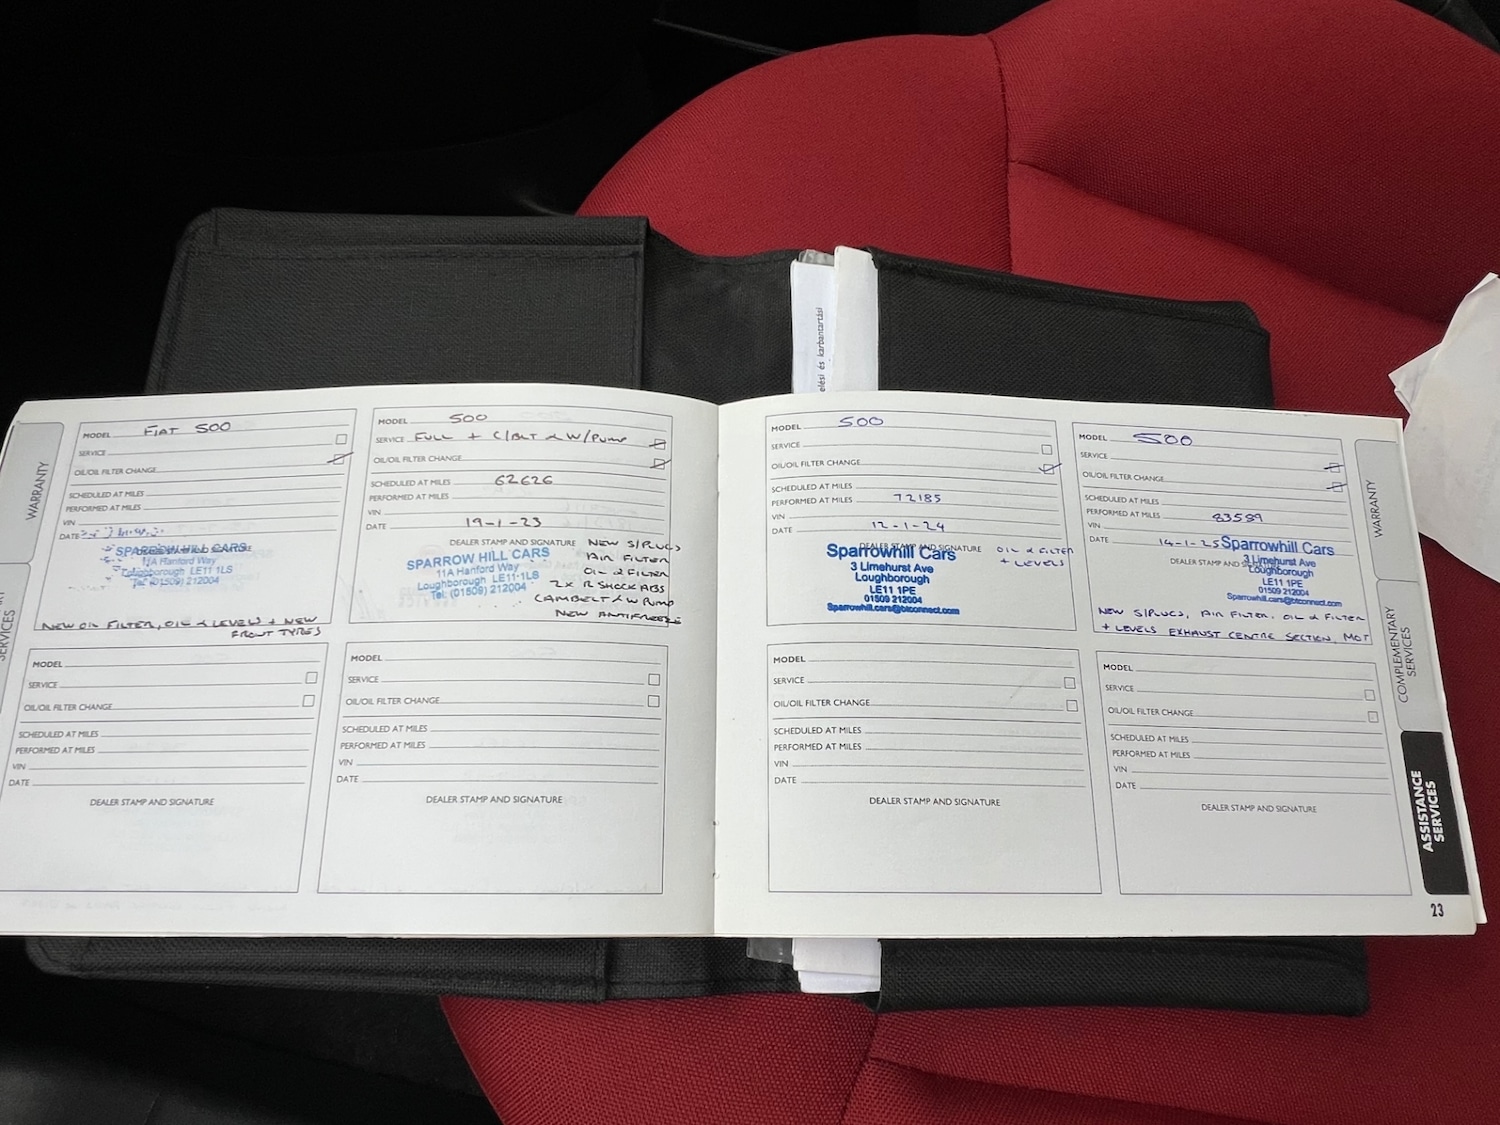 elési és karbantartási
WARRANTY
SERVICES
MODEL FIAT 500
SERVICE
OIL/OIL FILTER CHANGE
SCHEDULED AT MILES
PERFORMED AT MILES
VIN
DATE
DEALER STAMP AND SIGNATURE
SPARROW HILL CARS
11A Hanford Way
Loughborough LE11 1LS
Tel: (01509) 212004
NEW OIL FILTER, OIL & LEVELS + NEW
FRONT TYRES
MODEL 500
SERVICE FULL + C/BLT & W/PUMP
OIL/OIL FILTER CHANGE
SCHEDULED AT MILES 62626
PERFORMED AT MILES
VIN
DATE 19-1-23
DEALER STAMP AND SIGNATURE
SPARROW HILL CARS
11A Hanford Way
Loughborough LE11 1LS
Tel: (01509) 212004
NEW S/PLUGS
AIR FILTER
OIL & FILTER
2X R SHOCK ABS
CAMBELT & W PUMP
NEW ANTIFREEZE
MODEL
SERVICE
OIL/OIL FILTER CHANGE
SCHEDULED AT MILES
PERFORMED AT MILES
VIN
DATE
DEALER STAMP AND SIGNATURE
MODEL
SERVICE
OIL/OIL FILTER CHANGE
SCHEDULED AT MILES
PERFORMED AT MILES
VIN
DATE
DEALER STAMP AND SIGNATURE
MODEL 500
SERVICE
OIL/OIL FILTER CHANGE
SCHEDULED AT MILES
PERFORMED AT MILES 72185
VIN
DATE 12-1-24
DEALER STAMP AND SIGNATURE
Sparrowhill Cars
3 Limehurst Ave
Loughborough
LE11 1PE
01509 212004
Sparrowhill.cars@btconnect.com
OIL & FILTER
+ LEVELS
MODEL 500
SERVICE
OIL/OIL FILTER CHANGE
SCHEDULED AT MILES
PERFORMED AT MILES 83559
VIN
DATE 14-1-25
DEALER STAMP AND
Sparrowhill Cars
3 Limehurst Ave
Loughborough
LE11 1PE
01509 212004
Sparrowhill.cars@btconnect.com
NEW S/PLUGS, AIR FILTER, OIL & FILTER
+ LEVELS EXHAUST CENTRE SECTION, MOT
MODEL
SERVICE
OIL/OIL FILTER CHANGE
SCHEDULED AT MILES
PERFORMED AT MILES
VIN
DATE
DEALER STAMP AND SIGNATURE
MODEL
SERVICE
OIL/OIL FILTER CHANGE
SCHEDULED AT MILES
PERFORMED AT MILES
VIN
DATE
DEALER STAMP AND SIGNATURE
WARRANTY
COMPLEMENTARY
SERVICES
ASSISTANCE
SERVICES
23